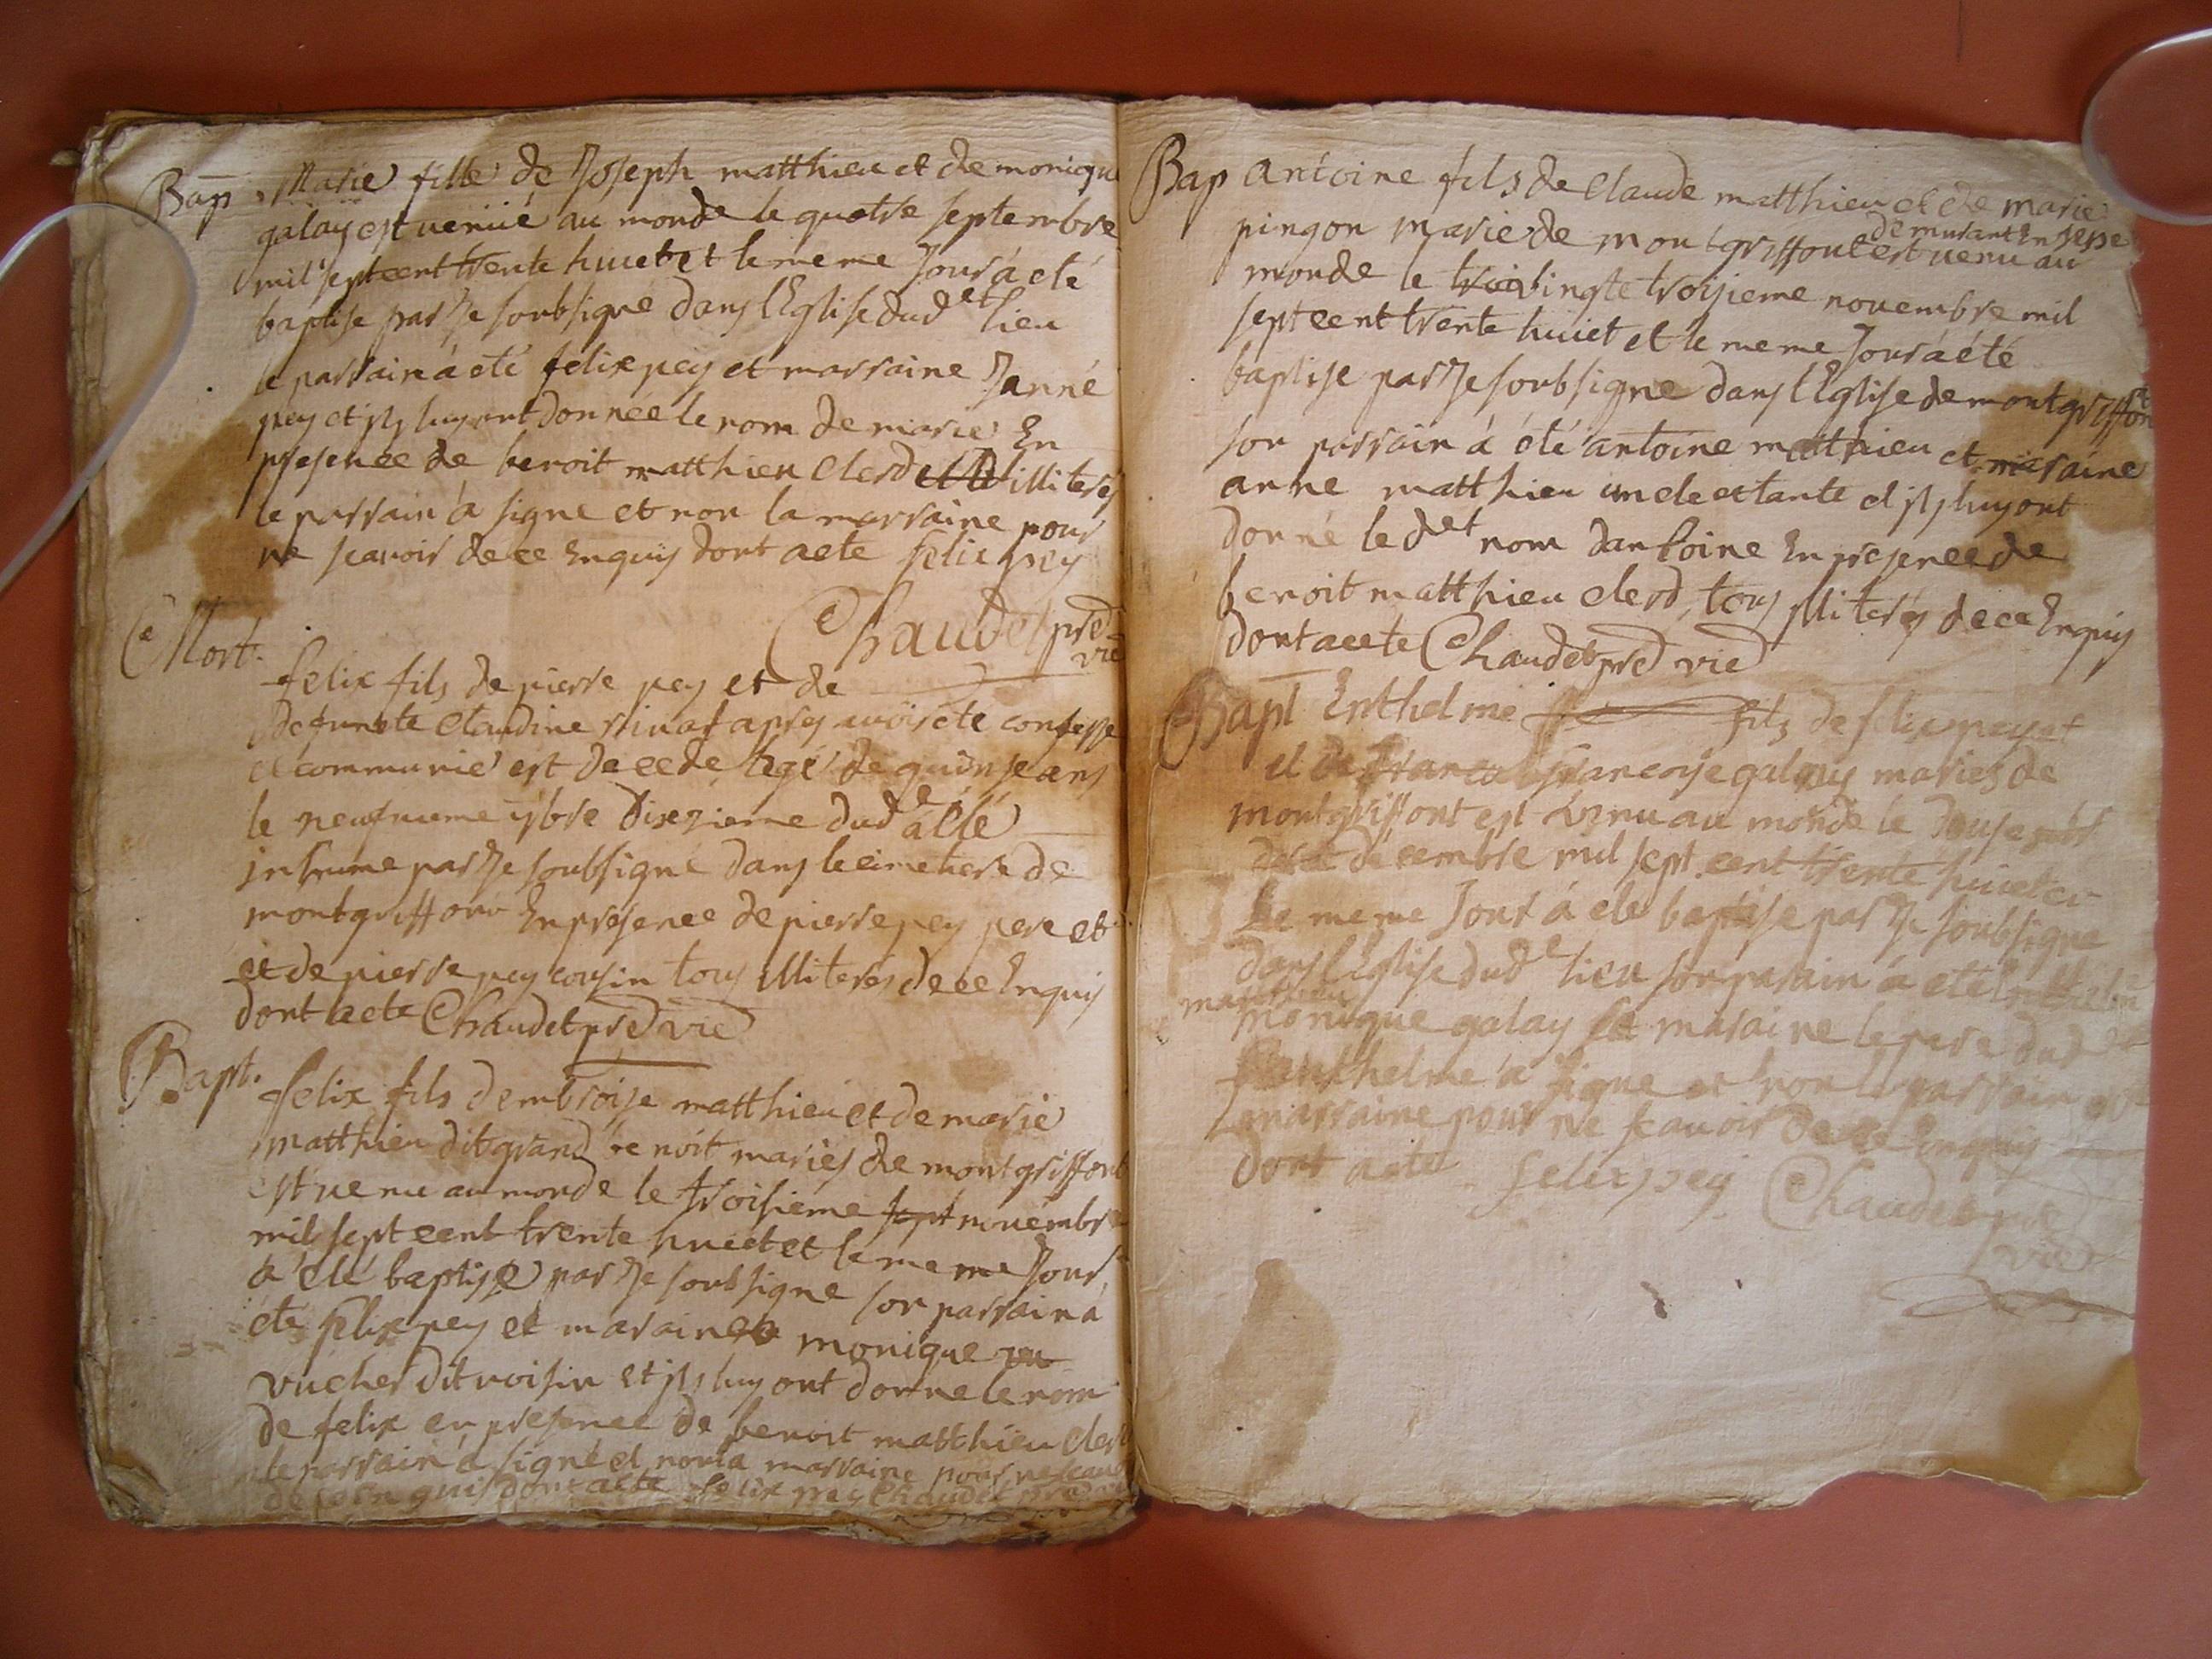 Bap Marie fille de Joseph matthieu et de monique
galay est venüe au monde le quatre septembre
mil sept cent trente huict et le meme Jour à eté
baptise par Je soubsigné dans l'Eglise dud et lieu
le parrain à eté felix pey et marraine Janne
pey et ils luy ont donnée le nom de marie En
presence de benoit matthieu clerd illiterés
le parrain à signe et non la marraine pour
ne scavoir de ce Enquis dont acte felix pey
Chaudet prd vie
Mort. felix fils de pierre pey et de
defuncte claudine rinaf apres avoir eté confesse
et communie est decede Agé de quinse ans
le neufvieme 9bre Diszieme dud e à eté
inhume par Je soubsigné dans le cimetiere de
montgriffont En presence de pierre pey pere et
et de pierre pey cousin tous illiterés de ce Enquis
dont acte Chaudet prd vie
Bapt. felix fils dembroise matthieu et de marie
matthieu dit grand benoit mariés de montgriffont
est venu au monde le troisieme sept novembre
mil sept cent trente huict et le meme Jour
à eté baptise par Je soubsigne son parrain à
eté felix pey et maraine monique vu
vucher dit voisin et ils luy ont donne le nom
de felix en presence de benoit matthieu clerd
le parrain à signé et non la marraine pour ne scavoir
de ce enquis dont acte felix pey Chaudet prd vie
Bap antoine fils de claude matthieu et de marie
pingon maries de montgriffont est venu au
demurant En
monde le troi vingte troisieme novembre mil
sept cent trente huict et le meme Jour à eté
baptise par Je soubsigne dans l'Eglise de montgriffont
son parrain à été antoine matthieu et maraine
anne matthieu oncle et tante et ils luy ont
donné le d et nom dantoine En presence de
benoit matthieu clerd, tous illiterés de ce Enquis
dont acte Chaudet prd vie
Bapt Enthelme fils de felix pey et
et de francoise galay maries de
montgriffont est venu au monde le douse
decembre mil sept cent trente huict et
le meme Jour à eté baptise par Je soubsigne
dans l'Eglise dud e lieu son parain à eté
matthieu
monique galay maraine le pere dud
Enthelme à signe et non le parrain et
marraine pour ne scavoir de ce Enquis
dont acte felix pey Chaudet prd
vie